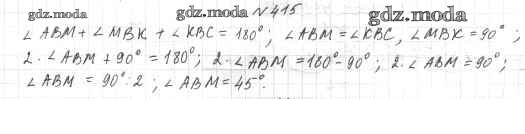 gdz.moda gdz.moda №415 gdz.moda
∠ABM + ∠MBK + ∠KBC = 180°; ∠ABM = ∠KBC, ∠MBK = 90°;
2·∠ABM + 90° = 180°; 2·∠ABM = 180° - 90°; 2·∠ABM = 90°;
∠ABM = 90°:2; ∠ABM = 45°.